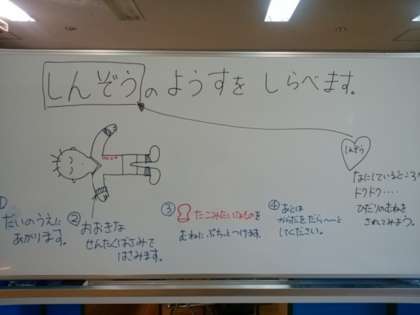 しんぞうのようすをしらべます。
しんぞう
①
だいのうえに
あがります。
②
おおきな
せんたくばさみで
はさみます。
③
たこみたいなものを
むねにぷちっとつけます。
④
あとは
からだをだら〜っと
してください。
なにしているところ
ドクドク‥‥
ひだりのむねを
さわってみよう。